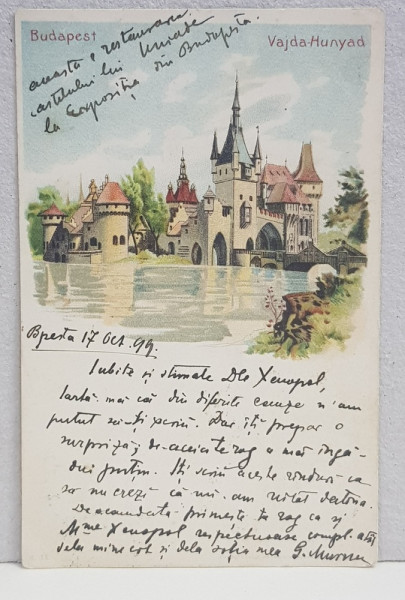 Budapest
Vajda-Hunyad
aceasta e restaurarea
castelului lui Huniade
la Expoziția din Budapesta.
Bpesta 17 Oct. 99.
Iubite și stimate Dle Xenopol,
Iartă-mă că din diferite cauze n'am
putut să-ți scriu. Dar îți prepar o
surpriză; de-aceia te rog a mă îngă-
dui puțin. Îți scriu aceste rînduri ca
să nu crezi că mi-am uitat datoria.
Deocamdată primește te rog ca și
Mme Xenopol respectuoase compl. atît
dela mine cît și dela soția mea G. Murnu